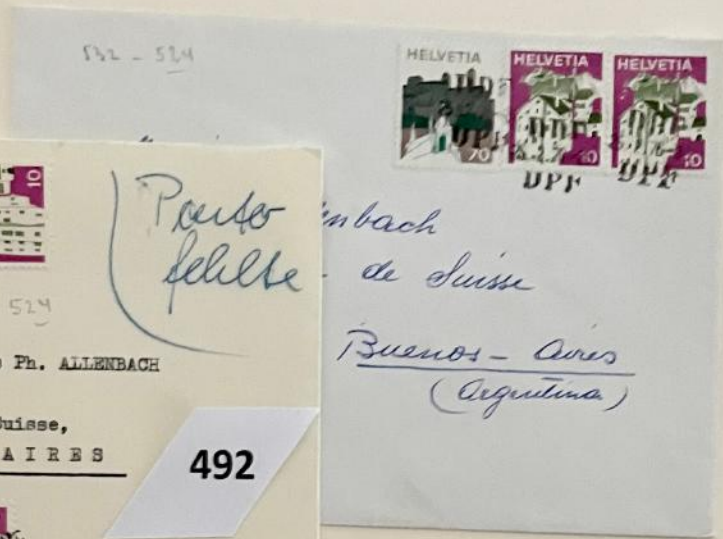 532 - 524
HELVETIA
70
HELVETIA
10
HELVETIA
10
DPF
DPF
nbach
de Suisse
Buenos - Aires
(Argentina)
10
Porto
524
Ph. ALLENBACH
Suisse,
AIRES
492